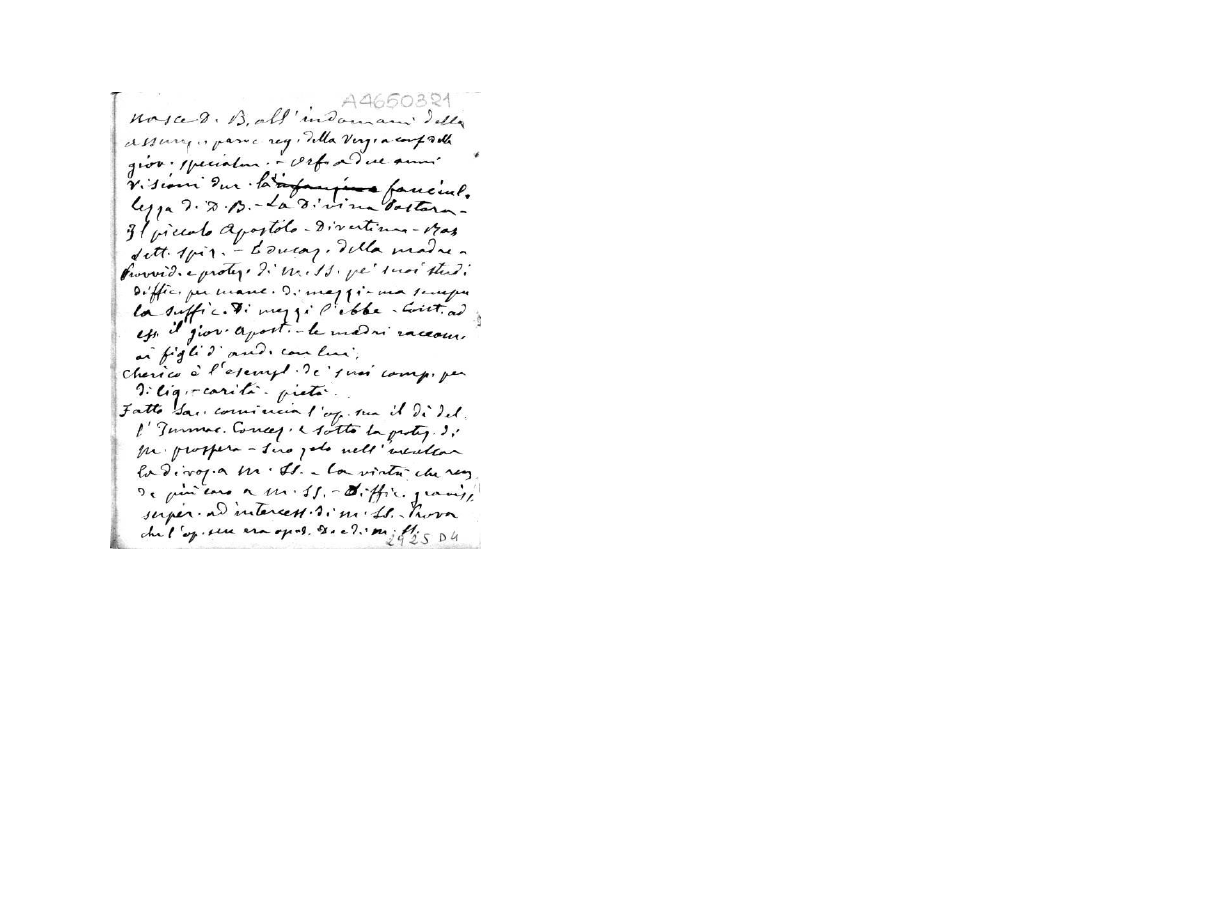 A4650321
Nasce D. B. all'indomani della
assunz. : parve reg. della Verg. a conf. della
giov. specialm. - Orf. a due anni
Visioni dur. la infanzia fanciul.
lezza di D. B. - La Divina Pastora -
Il piccolo Apostolo - Divertim. - Ros
Lett. spir. - Educaz. della madre -
Provvid. e protez. di M. SS. pe' suoi studi
Diffic. per manc. di mezzi - ma sempre
la suffic. di mezzi l'ebbe - Cost. ad
ess. il giov. Apost. - le madri raccom.
ai figli d' and. con lui.
Cherico è l'esempl. de' suoi comp. per
dilig. - carità - pietà.
Fatto Sac. comincia l'op. sua il dì del.
l'Immac. Concez. e sotto la protez. di
M. prospera - Suo zelo nell'inculcar
la divoz. a M. SS. - La virtù che ren
de più caro a M. SS. - Diffic. graviss.
super. ad intercess. di M. SS. - Prova
che l'op. sua era op. di D. e di M. SS.
2925 D4